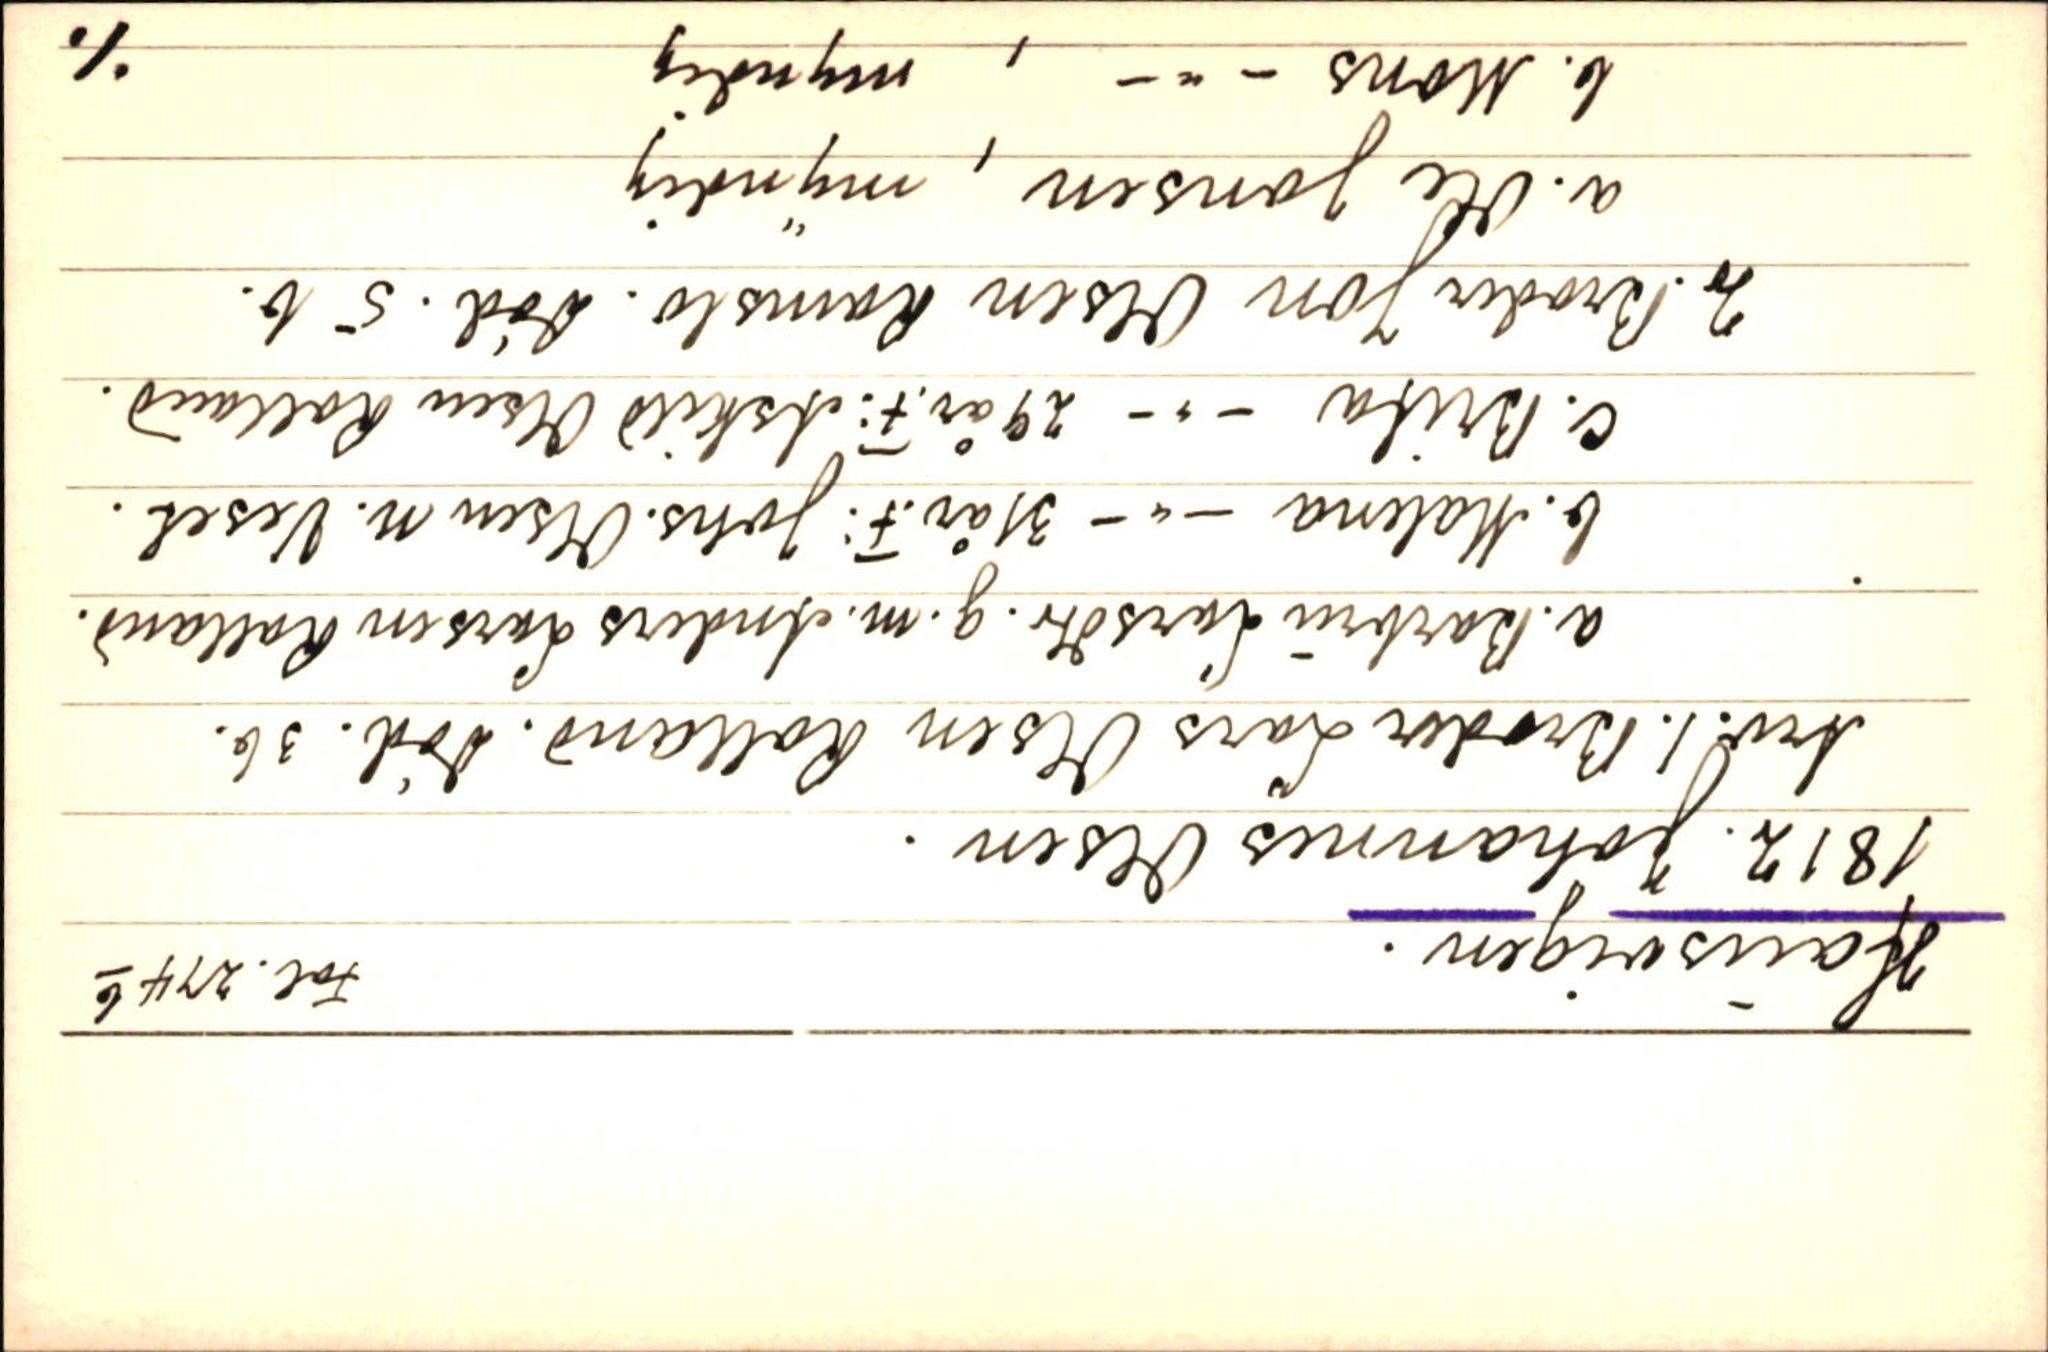 Fol. 274 b
Hausvigen.
1812. Johannes Olsen.
Arv: 1. Broder Lars Olsen Rolland. död. 3 b.
a. Barbru Larsdtr. g. m. Anders Larsen Rolland.
b. Malena -"- 31 år. F: Johs. Olsen N. Veset.
c. Brita -"- 29 år. F: Askild Olsen Rolland.
2. Broder Jon Olsen Ramslo. död. 5 b.
a. Ole Jonsen, myndig
b. Mons -"-, myndig
%